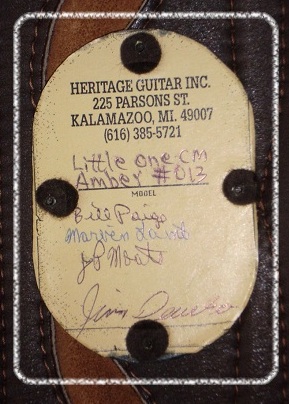 HERITAGE GUITAR INC.
225 PARSONS ST.
KALAMAZOO, MI. 49007
(616) 385-5721
Little One-CM
Amber #013
MODEL
Bill Paige
Marvin Lamb
JP Moats
Jim